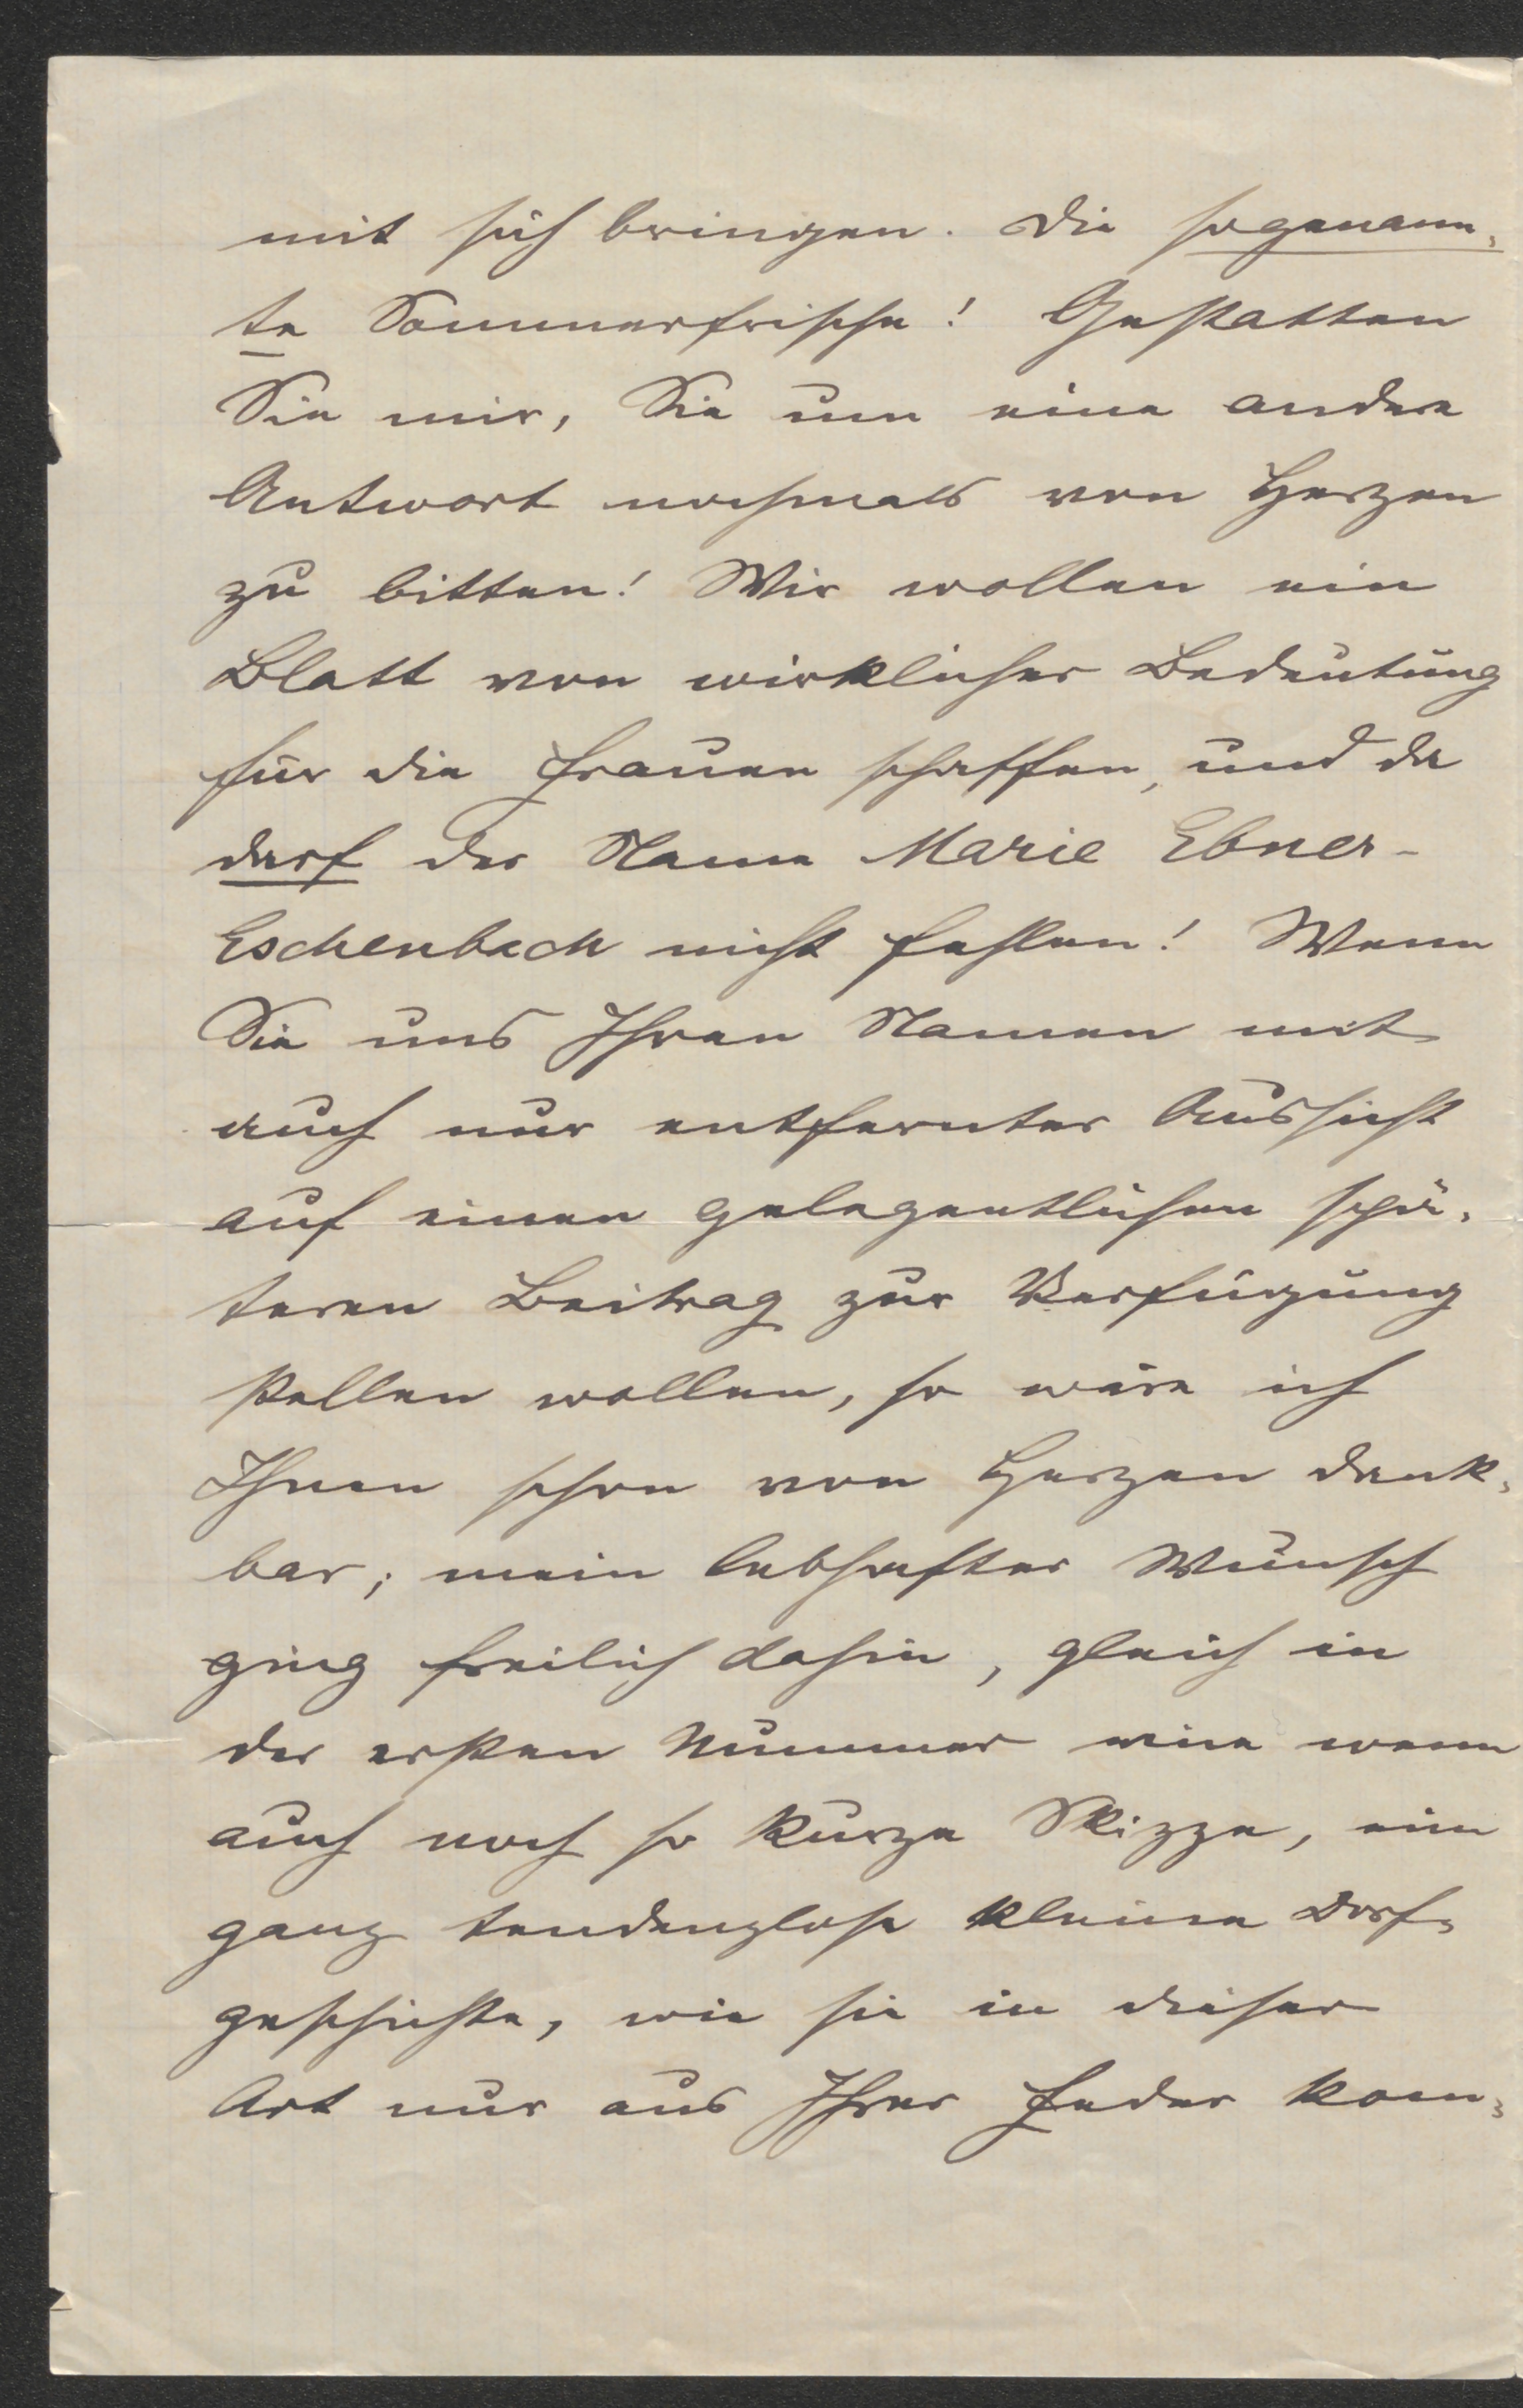 mit sich bringen. Die sogenann-
te Sommerfrische! Gestatten
Sie mir, Sie um eine andere
Antwort nochmals von Herzen
zu bitten! Wir wollen ein
Blatt von wirklicher Bedeutung
für die Frauen schaffen, und da
darf der Name Marie Ebner-
Eschenbach nicht fehlen! Wenn
Sie uns Ihren Namen mit
auch nur entfernter Aussicht
auf einen gelegentlichen spä-
teren Beitrag zur Verfügung
stellen wollen, so wäre ich
Ihnen schon von Herzen dank-
bar; mein lebhafter Wunsch
ging freilich dahin, gleich in
der ersten Nummer eine wenn
auch noch so kurze Skizze, eine
ganz tendenzlose kleine Dorf-
geschichte, wie sie in dieser
Art nur aus Ihrer Feder kom-